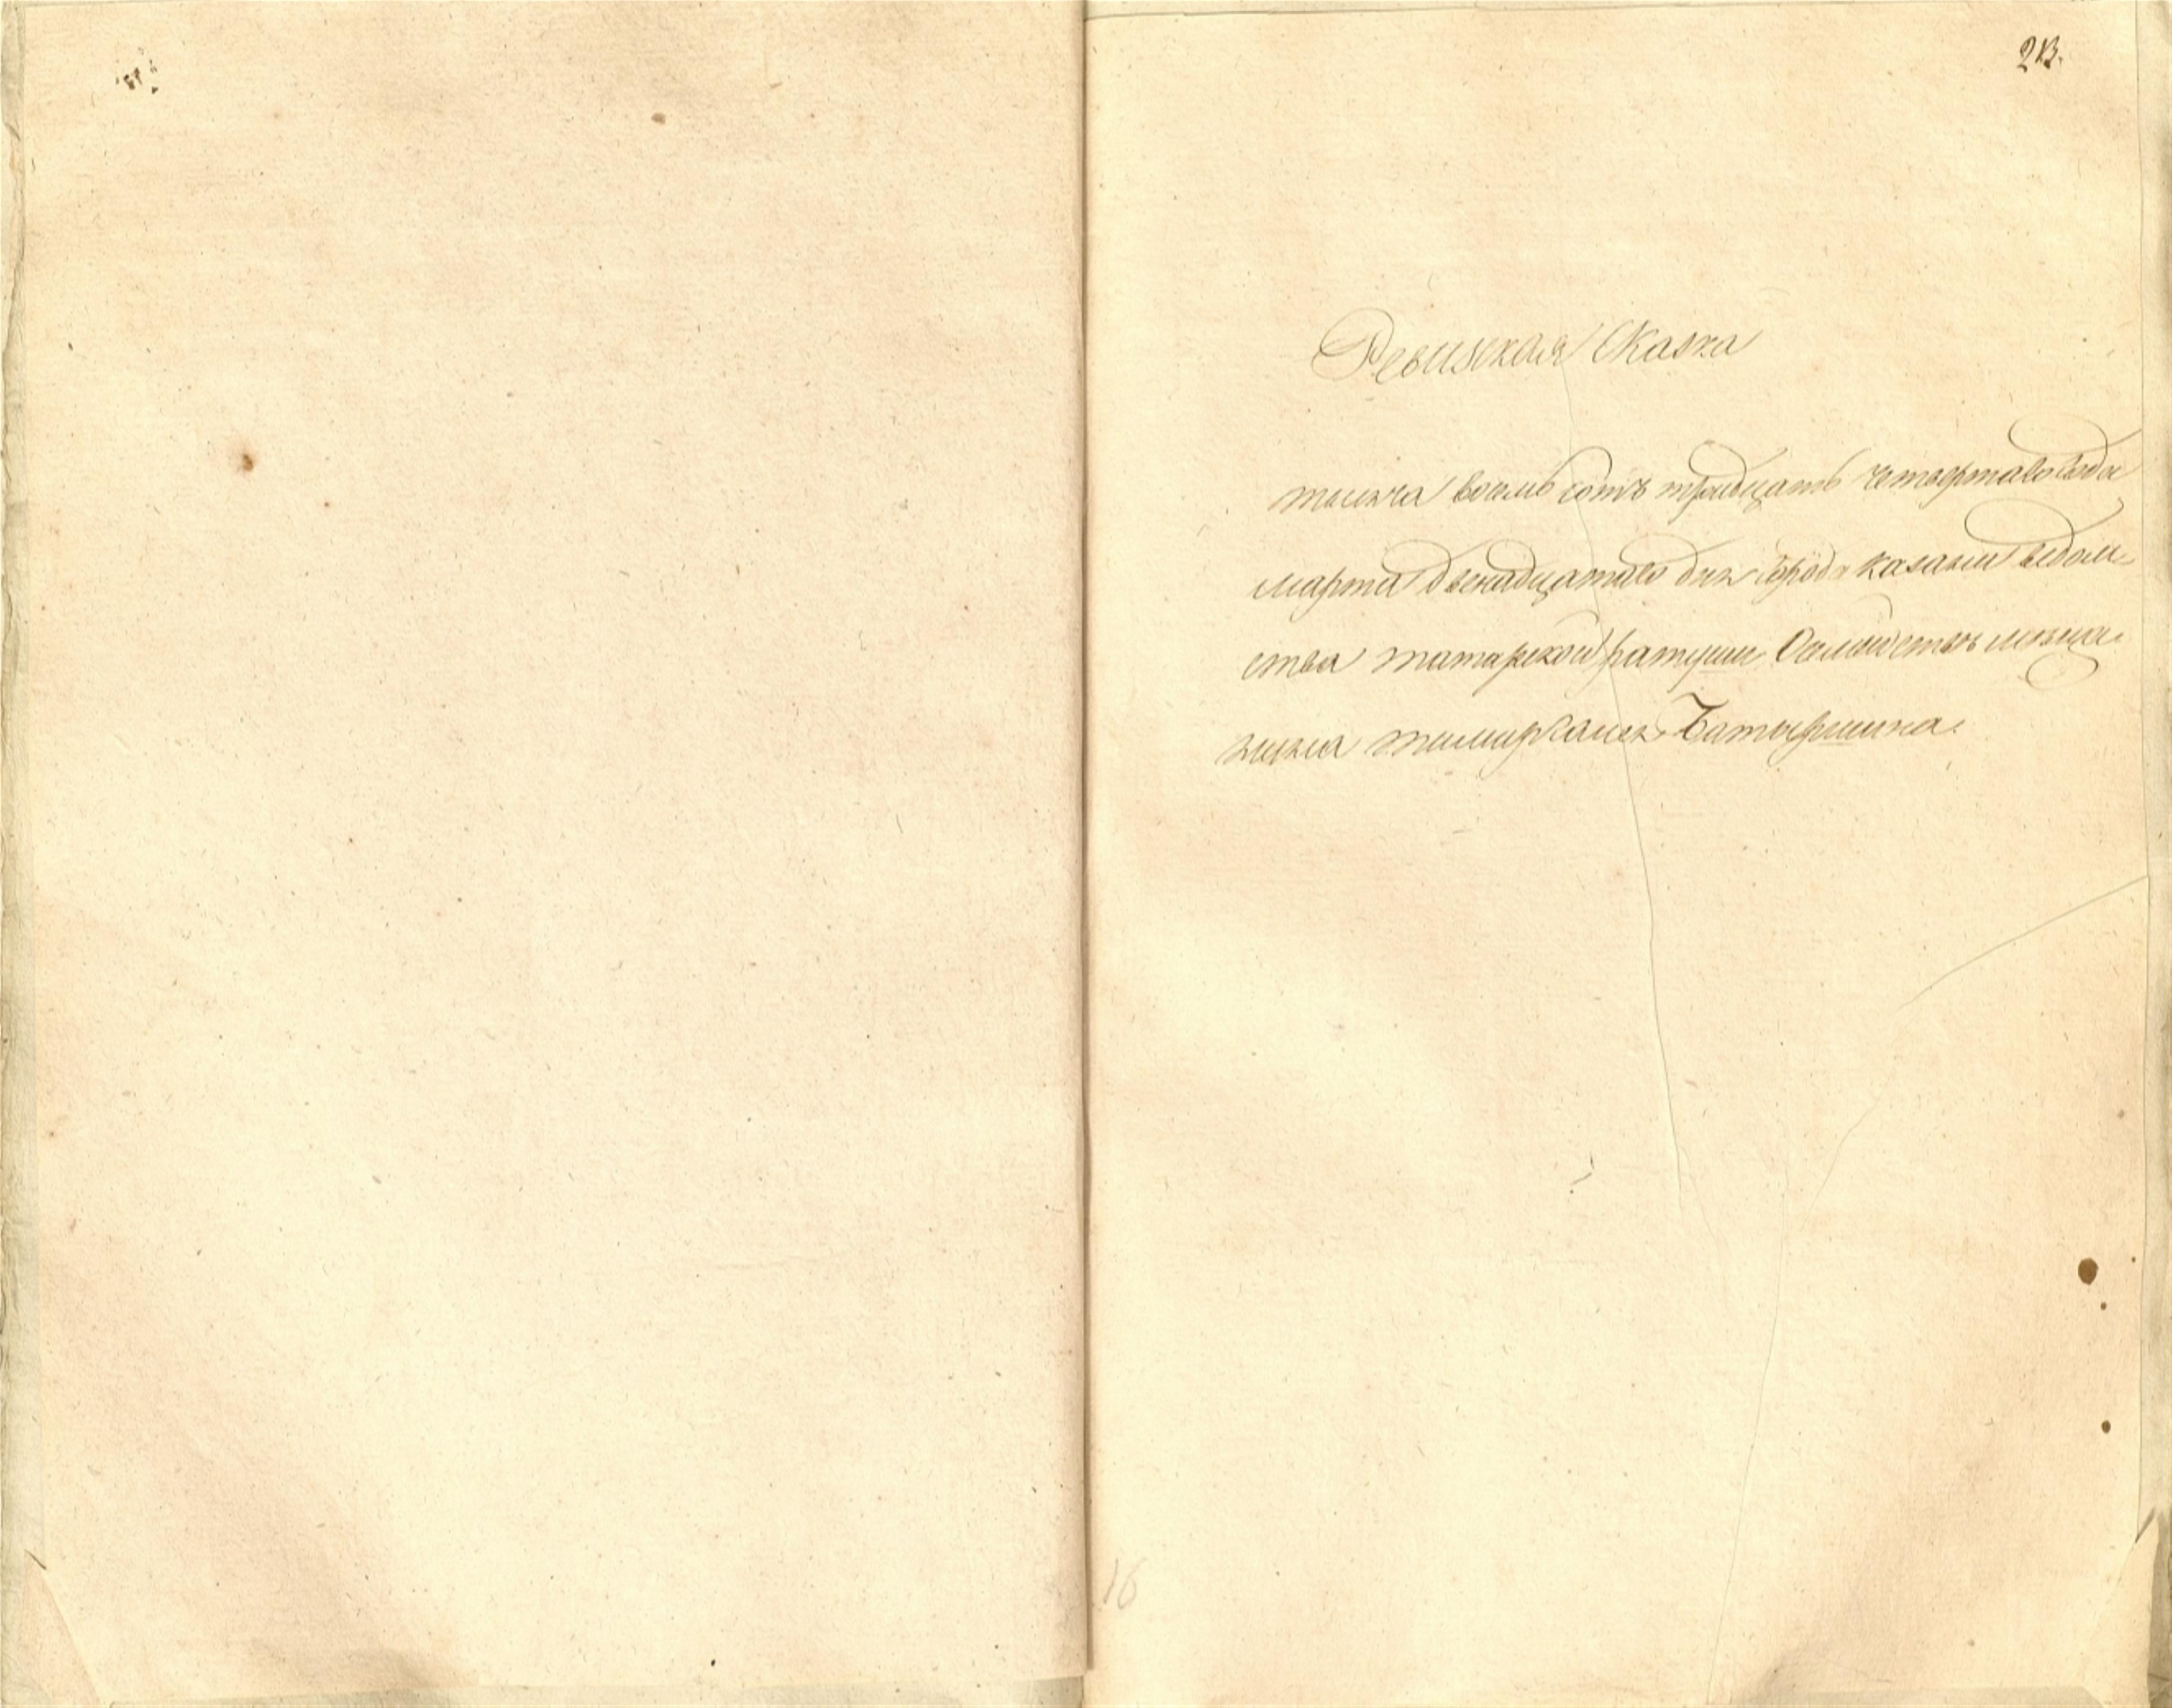 213.
Ревизская Сказка
тысяча восемь сотъ тридцать четвертаго года
марта двенадцатаго дня города казани ведом-
ства татарской ратуши о семействе меща-
нина Батыршина.
16